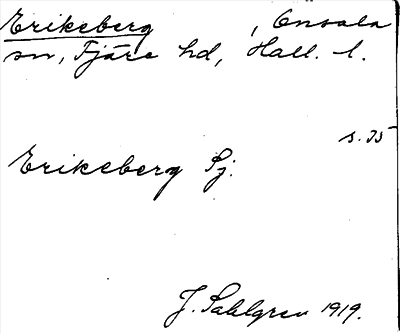 Erikeberg , Onsala
sn, Fjäre hd, Hall. l.
s. 35
Erikeberg Sj.
J. Sahlgren 1919.